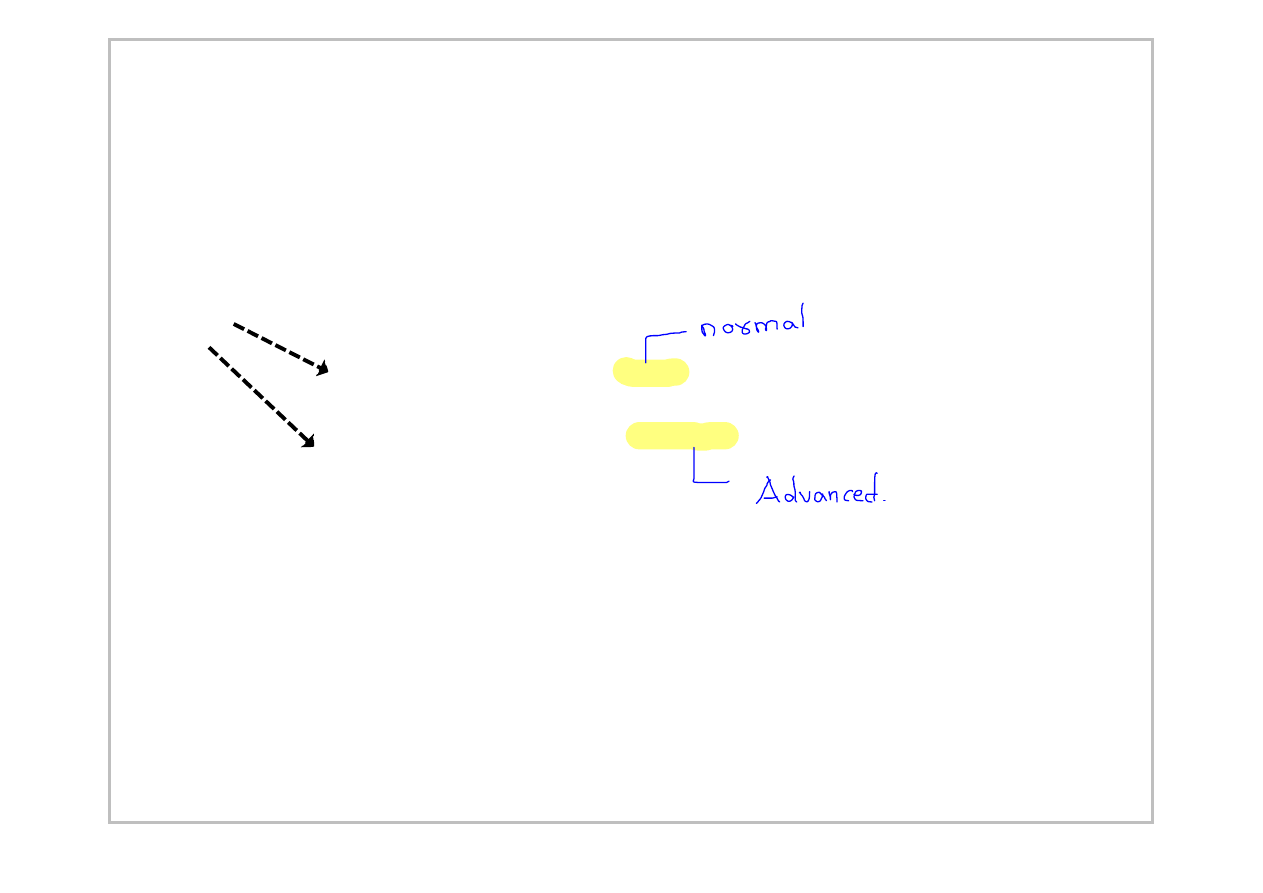 normal
Advanced.